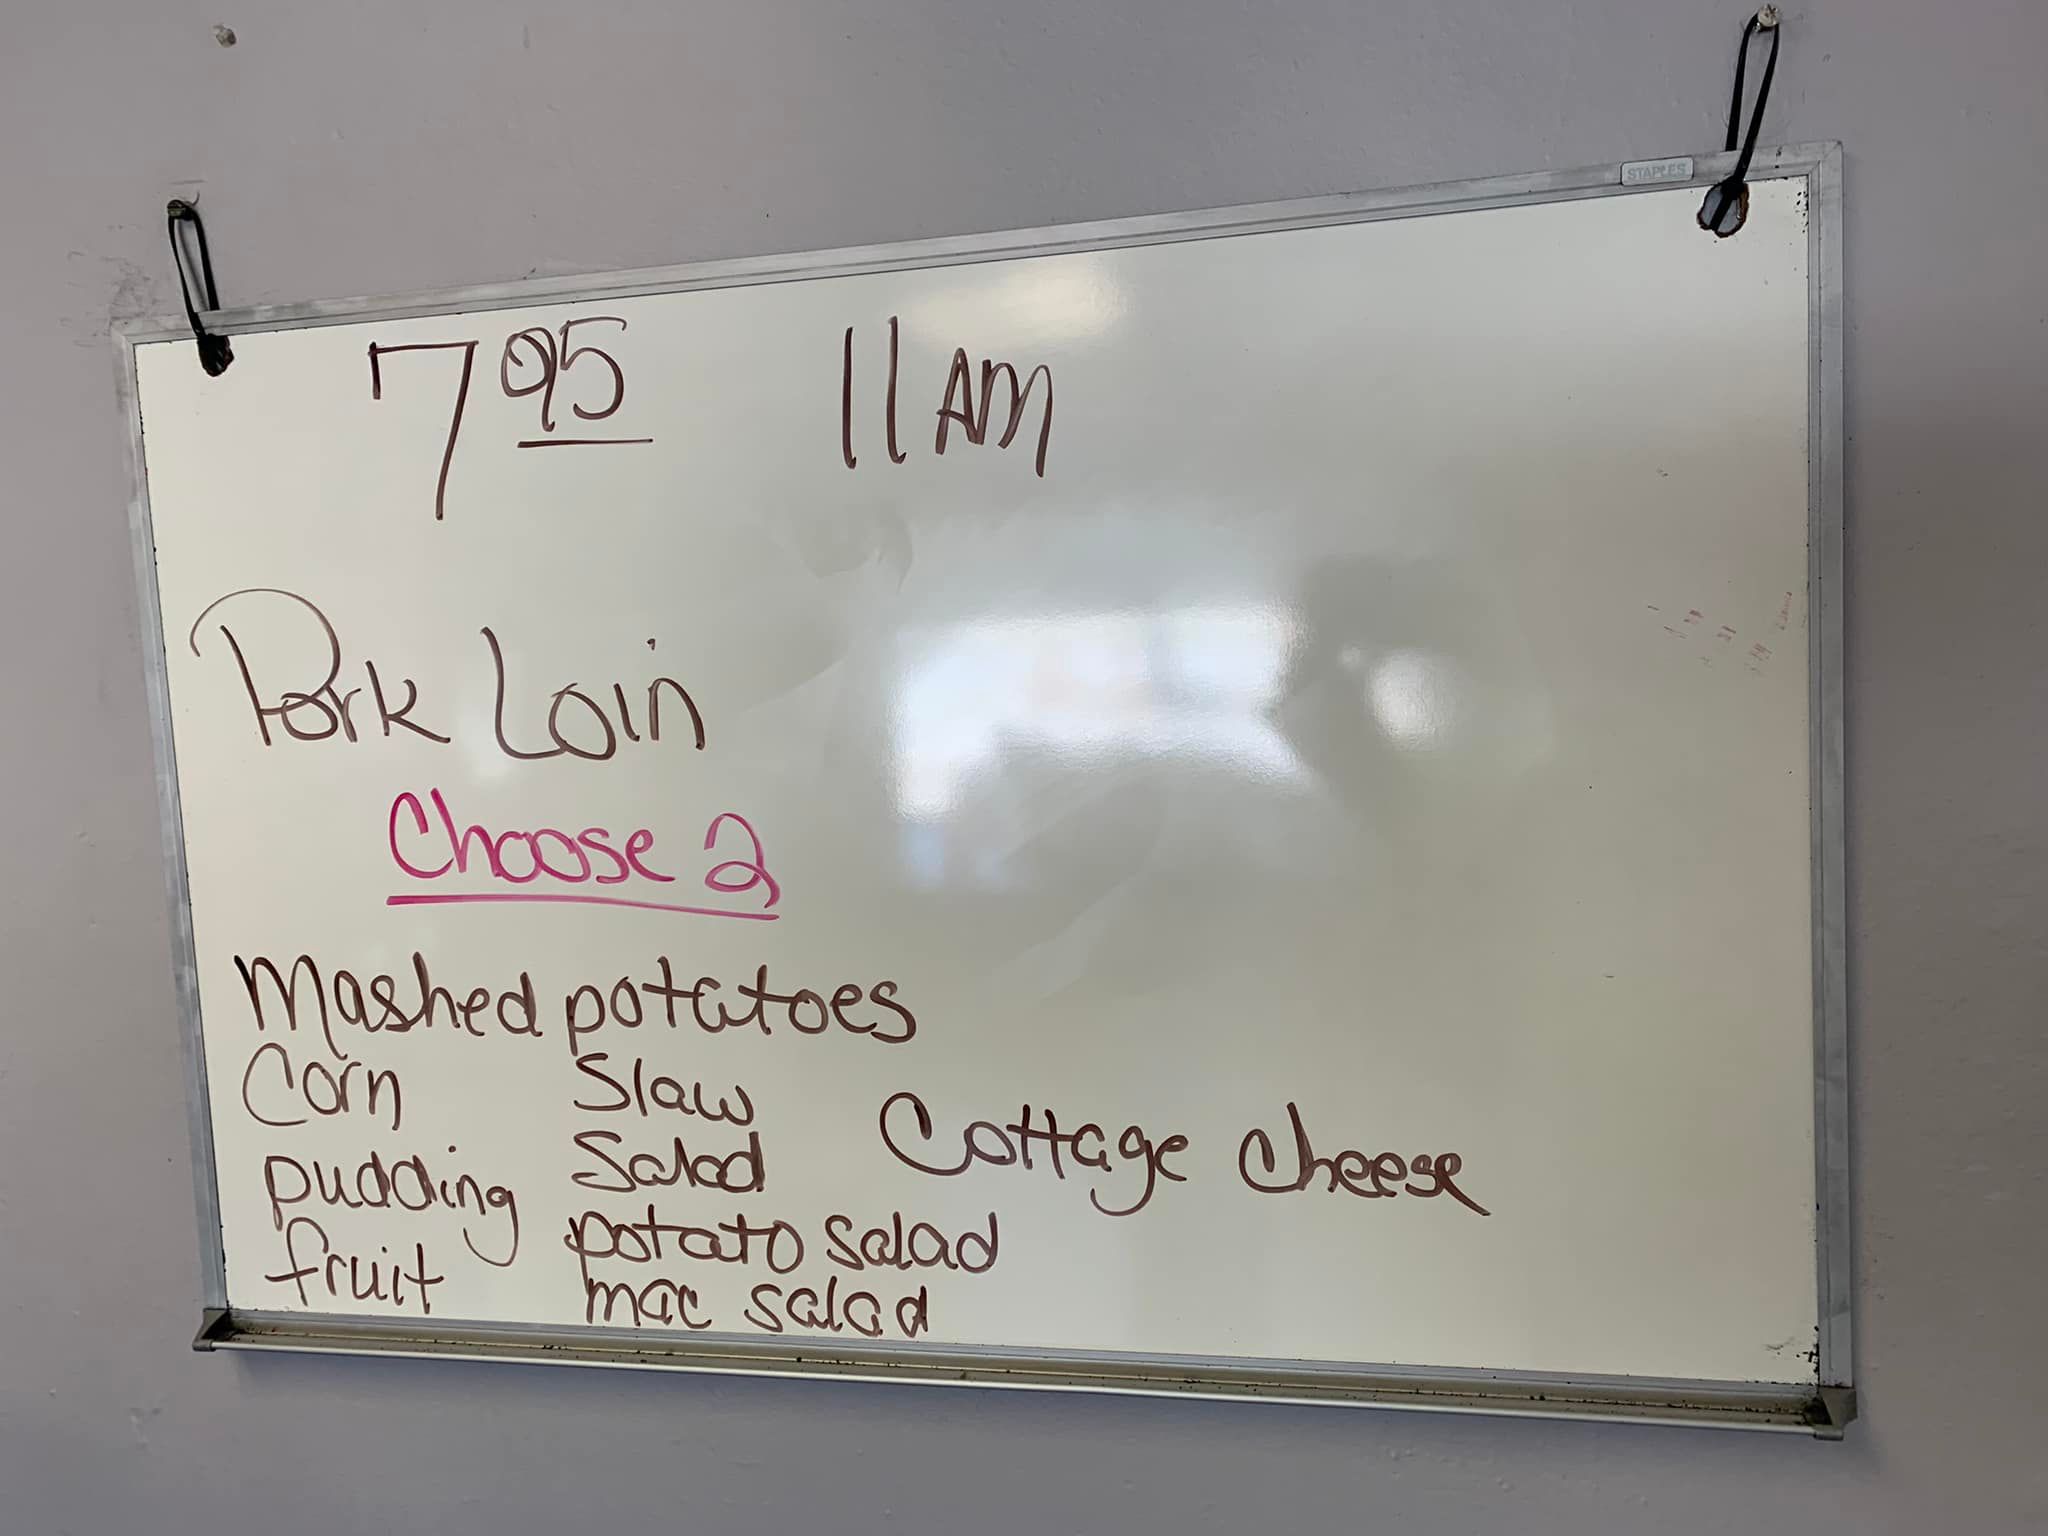 STAPLES
7 95 11 AM
Pork Loin
Choose 2
Mashed potatoes
Corn Slaw
Cottage cheese
pudding Salad
fruit potato salad
mac salad